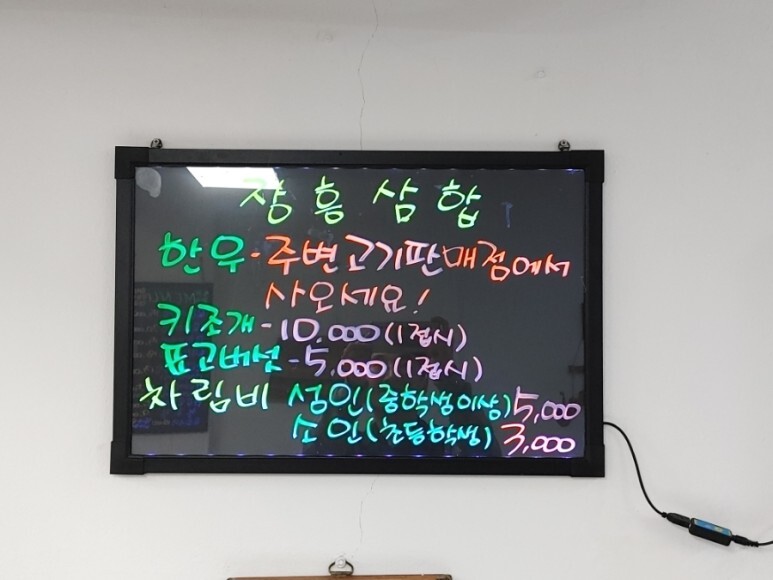 장흥삼합
한우-주변고기판매점에서
사오세요!
키조개-10,000(1접시)
표고버섯-5,000(1접시)
차림비 성인(중학생이상)5,000
소인(초등학생) 3,000